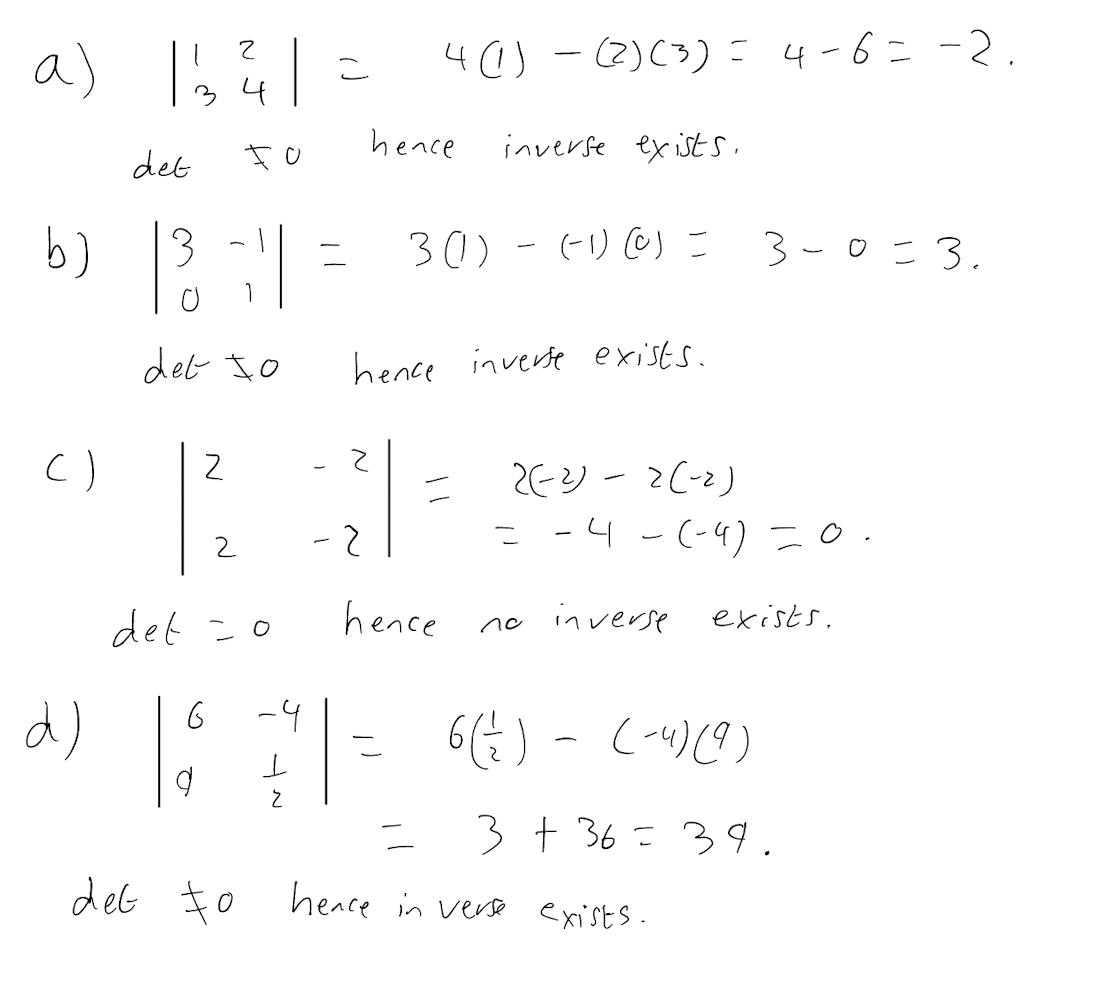 a) | 1 2 | = 4(1) - (2)(3) = 4 - 6 = -2.
| 3 4 |
det ≠ 0 hence inverse exists.
b) | 3 -1 | = 3(1) - (-1)(0) = 3 - 0 = 3.
| 0 1 |
det ≠ 0 hence inverse exists.
c) | 2 -2 | = 2(-2) - 2(-2)
| 2 -2 | = -4 - (-4) = 0.
det = 0 hence no inverse exists.
d) | 6 -4 | = 6(1/2) - (-4)(9)
| 9 1/2 |
= 3 + 36 = 39.
det ≠ 0 hence inverse exists.